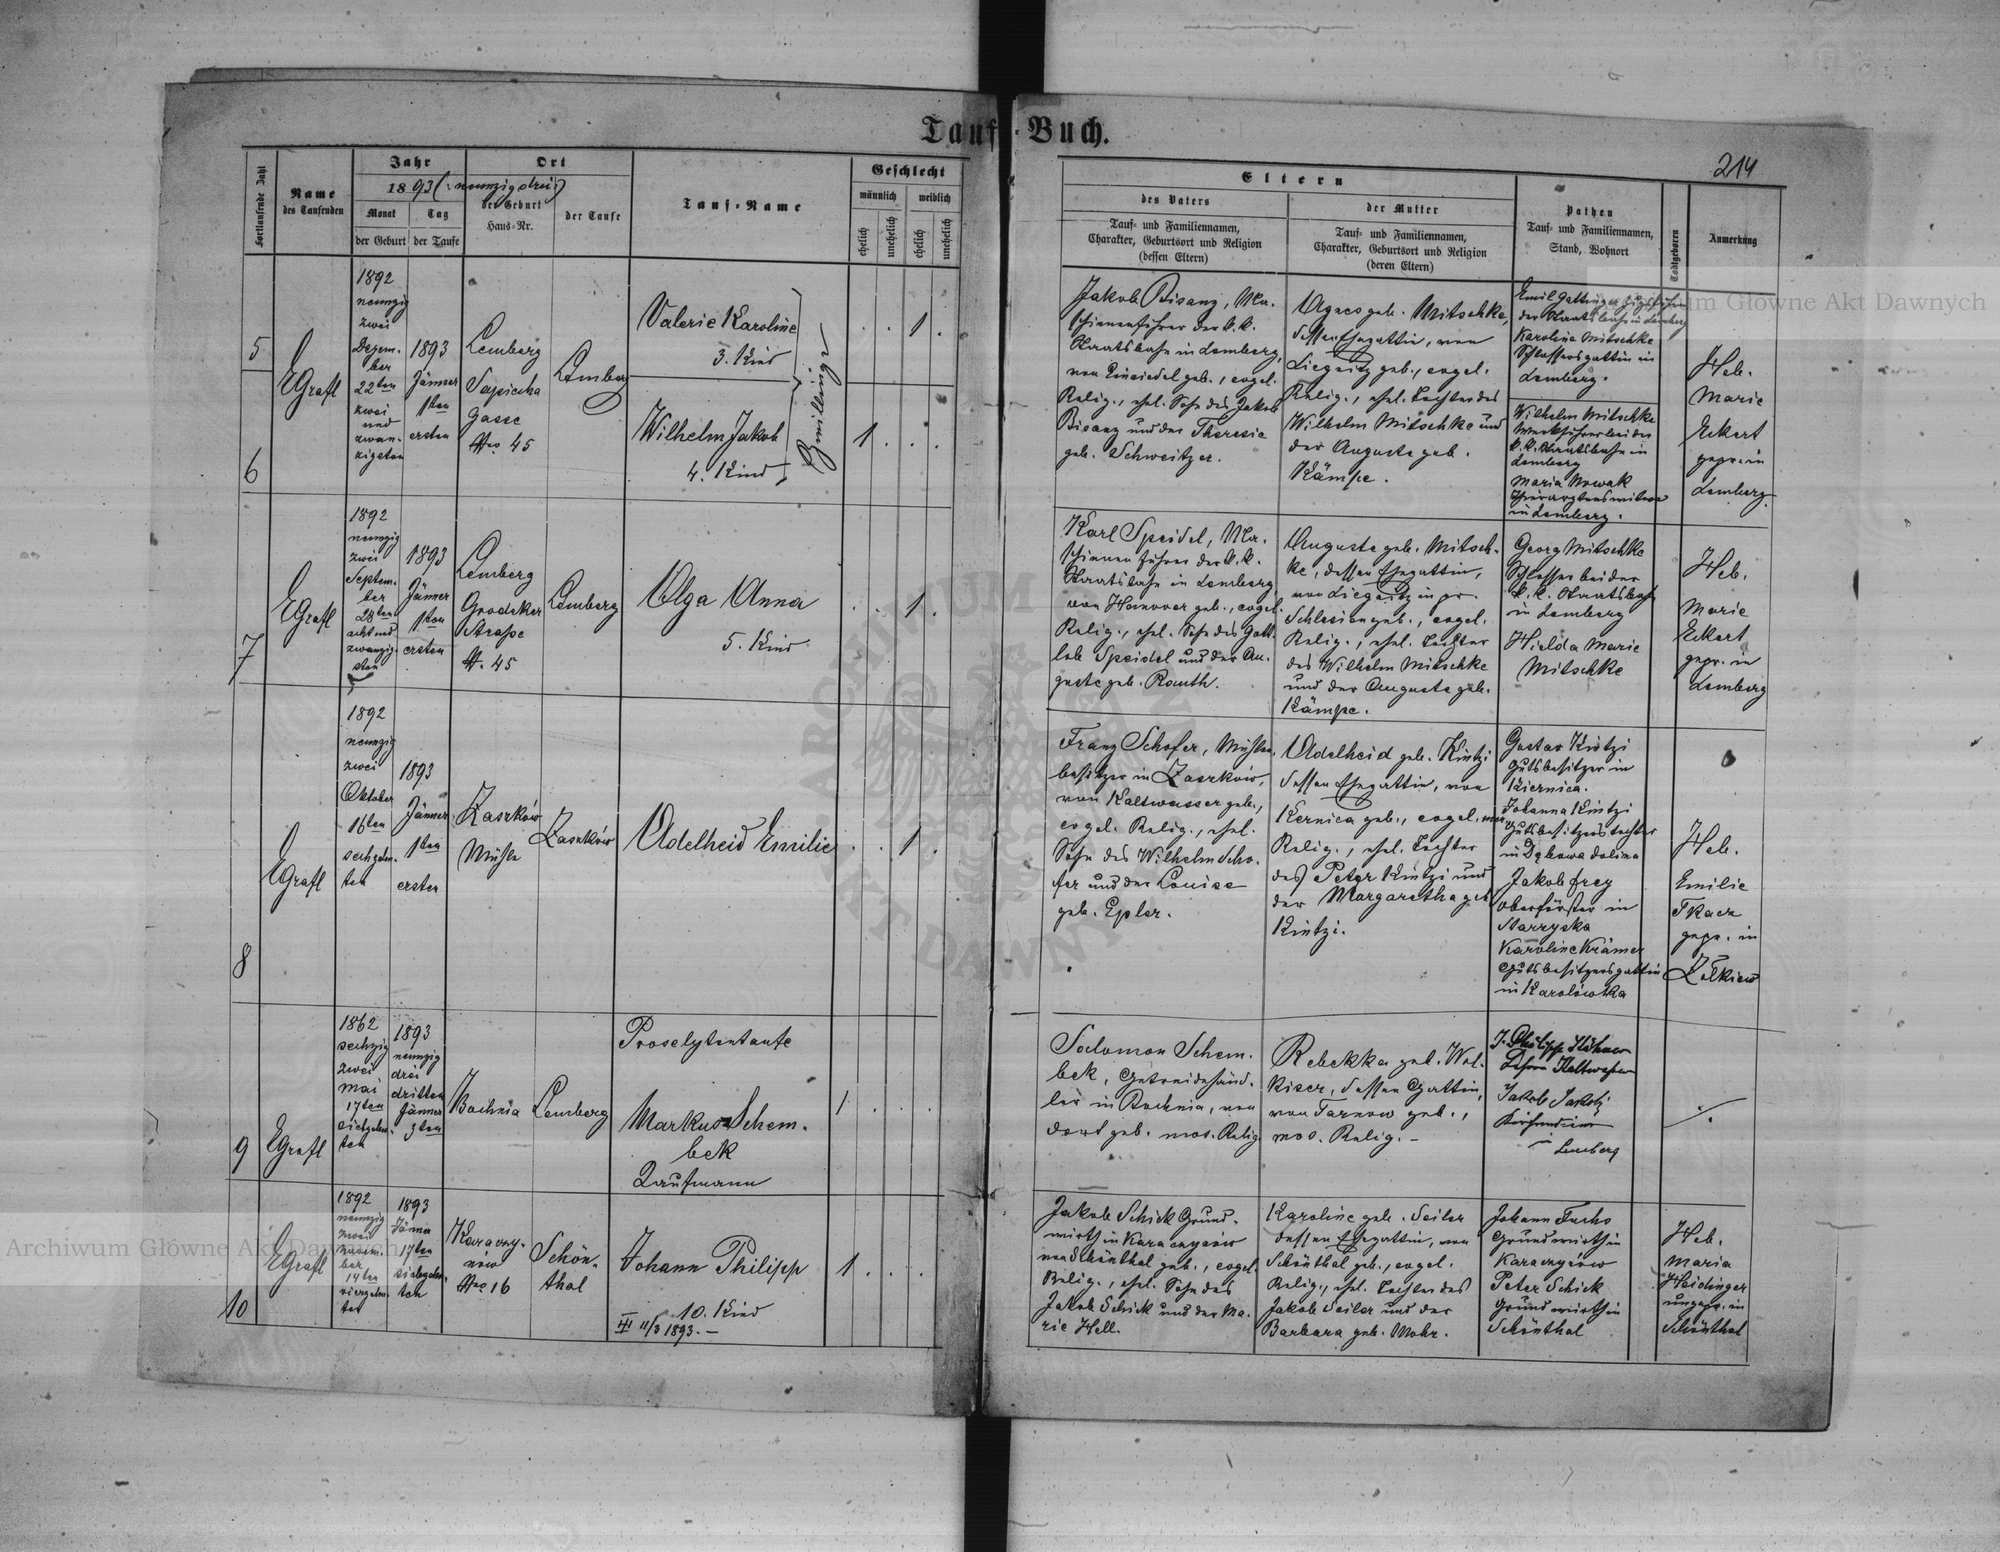 Tauf-Buch.
214
Fortlaufende Zahl
Name
des Taufenden
Jahr
1893 (: neunzigdrei)
Monat
Tag
der Geburt
der Taufe
Ort
der Geburt
Haus-Nr.
der Taufe
Tauf-Name
Geschlecht
männlich
weiblich
ehelich
unehelich
ehelich
unehelich
Eltern
des Vaters
Tauf- und Familiennamen,
Charakter, Geburtsort und Religion
(dessen Eltern)
der Mutter
Tauf- und Familiennamen,
Charakter, Geburtsort und Religion
(deren Eltern)
Pathen
Tauf- und Familiennamen,
Stand, Wohnort
Todtgeboren
Anmerkung
5
6
EGrafl
1892
neunzig
zwei
Dezem-
ber
22ten
zwei
und
zwan-
zigsten
1893
Jänner
1ten
ersten
Lemberg
Sapieha
Gasse
Nro 45
Lemberg
Valerie Karoline
3. Kind
Wilhelm Jakob
4. Kind
Zwillinge
1
1
Jakob Bisanz, Ma-
schinenführer der k.k.
Staatsbahn in Lemberg,
von Einsiedel geb., evgel.
Relig., ehel. Sohn des Jakob
Bisanz und der Theresie
geb. Schweitzer.
Agnes geb. Mitschke,
dessen Ehegattin, von
Liegnitz geb., evgel.
Relig., ehel. Tochter des
Wilhelm Mitschke und
der Auguste geb.
Kämpe.
Emil Gattinger
der Staatsbahn in Lemberg
Karoline Mitschke
Schlossersgattin in
Lemberg.
Wilhelm Mitschke
Werkführer bei der
k.k. Staatsbahn in
Lemberg
Maria Nowak
in Lemberg.
Heb.
Marie
Eckert
gepr. in
Lemberg.
7
EGrafl
1892
neunzig
zwei
Septem-
ber
28ten
acht und
zwanzig-
sten
1893
Jänner
1ten
ersten
Lemberg
Grodeker
Straße
N. 45
Lemberg
Olga Anna
5. Kind
1
Karl Speidel, Ma-
schinenführer der k.k.
Staatsbahn in Lemberg,
von Hannover geb., evgel.
Relig., ehel. Sohn des Gott-
lob Speidel und der Au-
guste geb. Rauth.
Auguste geb. Mitsch-
ke, dessen Ehegattin,
von Liegnitz in pr.
Schlesien geb., evgel.
Relig., ehel. Tochter
des Wilhelm Mitschke
und der Auguste geb.
Kämpe.
Georg Mitschke
Schlosser bei der
k.k. Staatsbahn
in Lemberg
Hielda Marie
Mitschke
Heb.
Marie
Eckert
gepr. in
Lemberg
8
EGrafl
1892
neunzig
zwei
Oktober
16ten
sechzehn-
ten
1893
Jänner
1ten
ersten
Zaszków
Mühle
Zaszków
Adelheid Emilie
1
Franz Schofer, Mühlen-
besitzer in Zaszków,
von Kaltwasser geb.,
evgel. Relig., ehel.
Sohn des Wilhelm Scho-
fer und der Louise
geb. Epler.
Adelheid geb. Kintzi
dessen Ehegattin, von
Kernica geb., evgel. men.
Relig., ehel. Tochter
des Peter Kintzi und
der Margaretha geb.
Kintzi.
Gustav Kintzi
Gutsbesitzer in
Kiernica.
Johanna Kintzi
Gutsbesitzerstochter
in Dąbowa dolina
Jakob Frey
Oberförster in
Starzyska
Karoline Krämer
Gutsbesitzersgattin
in Karolówka
Heb.
Emilie
Tkacz
gepr. in
Żółkiew
9
EGrafl
1862
sechzig
zwei
Mai
17ten
siebzehn-
ten
1893
neunzig
drei
dritten
Jänner
3ten
Bochnia
Lemberg
Proselytentaufe
Markus Schem-
bek
Kaufmann
1
Salomon Schem-
bek, Getreidehänd-
ler in Bochnia, von
dort geb. mos. Relig.
Rebekka geb. Wel-
kiser, dessen Gattin,
von Tarnow geb.,
mos. Relig. -
J. Philipp Höhner
Jakob Jakobi
Kirchendiener
in
Lemberg
./.
10
EGrafl
1892
neunzig
zwei
Novem-
ber
14ten
vierzehn-
ten
1893
Jänner
17ten
siebzehn-
ten
Karaczy-
nów
Nro 16
Schön-
thal
Johann Philipp
10. Kind
III 11/3 1893. -
1
Jakob Schick Grund-
wirth in Karaczynów
von Schönthal geb., evgel.
Relig., ehel. Sohn des
Jakob Schick und der Ma-
rie Hell.
Karoline geb. Seiler
dessen Ehegattin, von
Schönthal geb., evgel.
Relig., ehel. Tochter des
Jakob Seiler und der
Barbara geb. Mohr.
Johann Fuchs
Grundwirth in
Karaczynów
Peter Schick
Grundwirth in
Schönthal
Heb.
Maria
Heidinger
ungepr. in
Schönthal
Archiwum Główne Akt Dawnych
Archiwum Główne Akt Dawnych